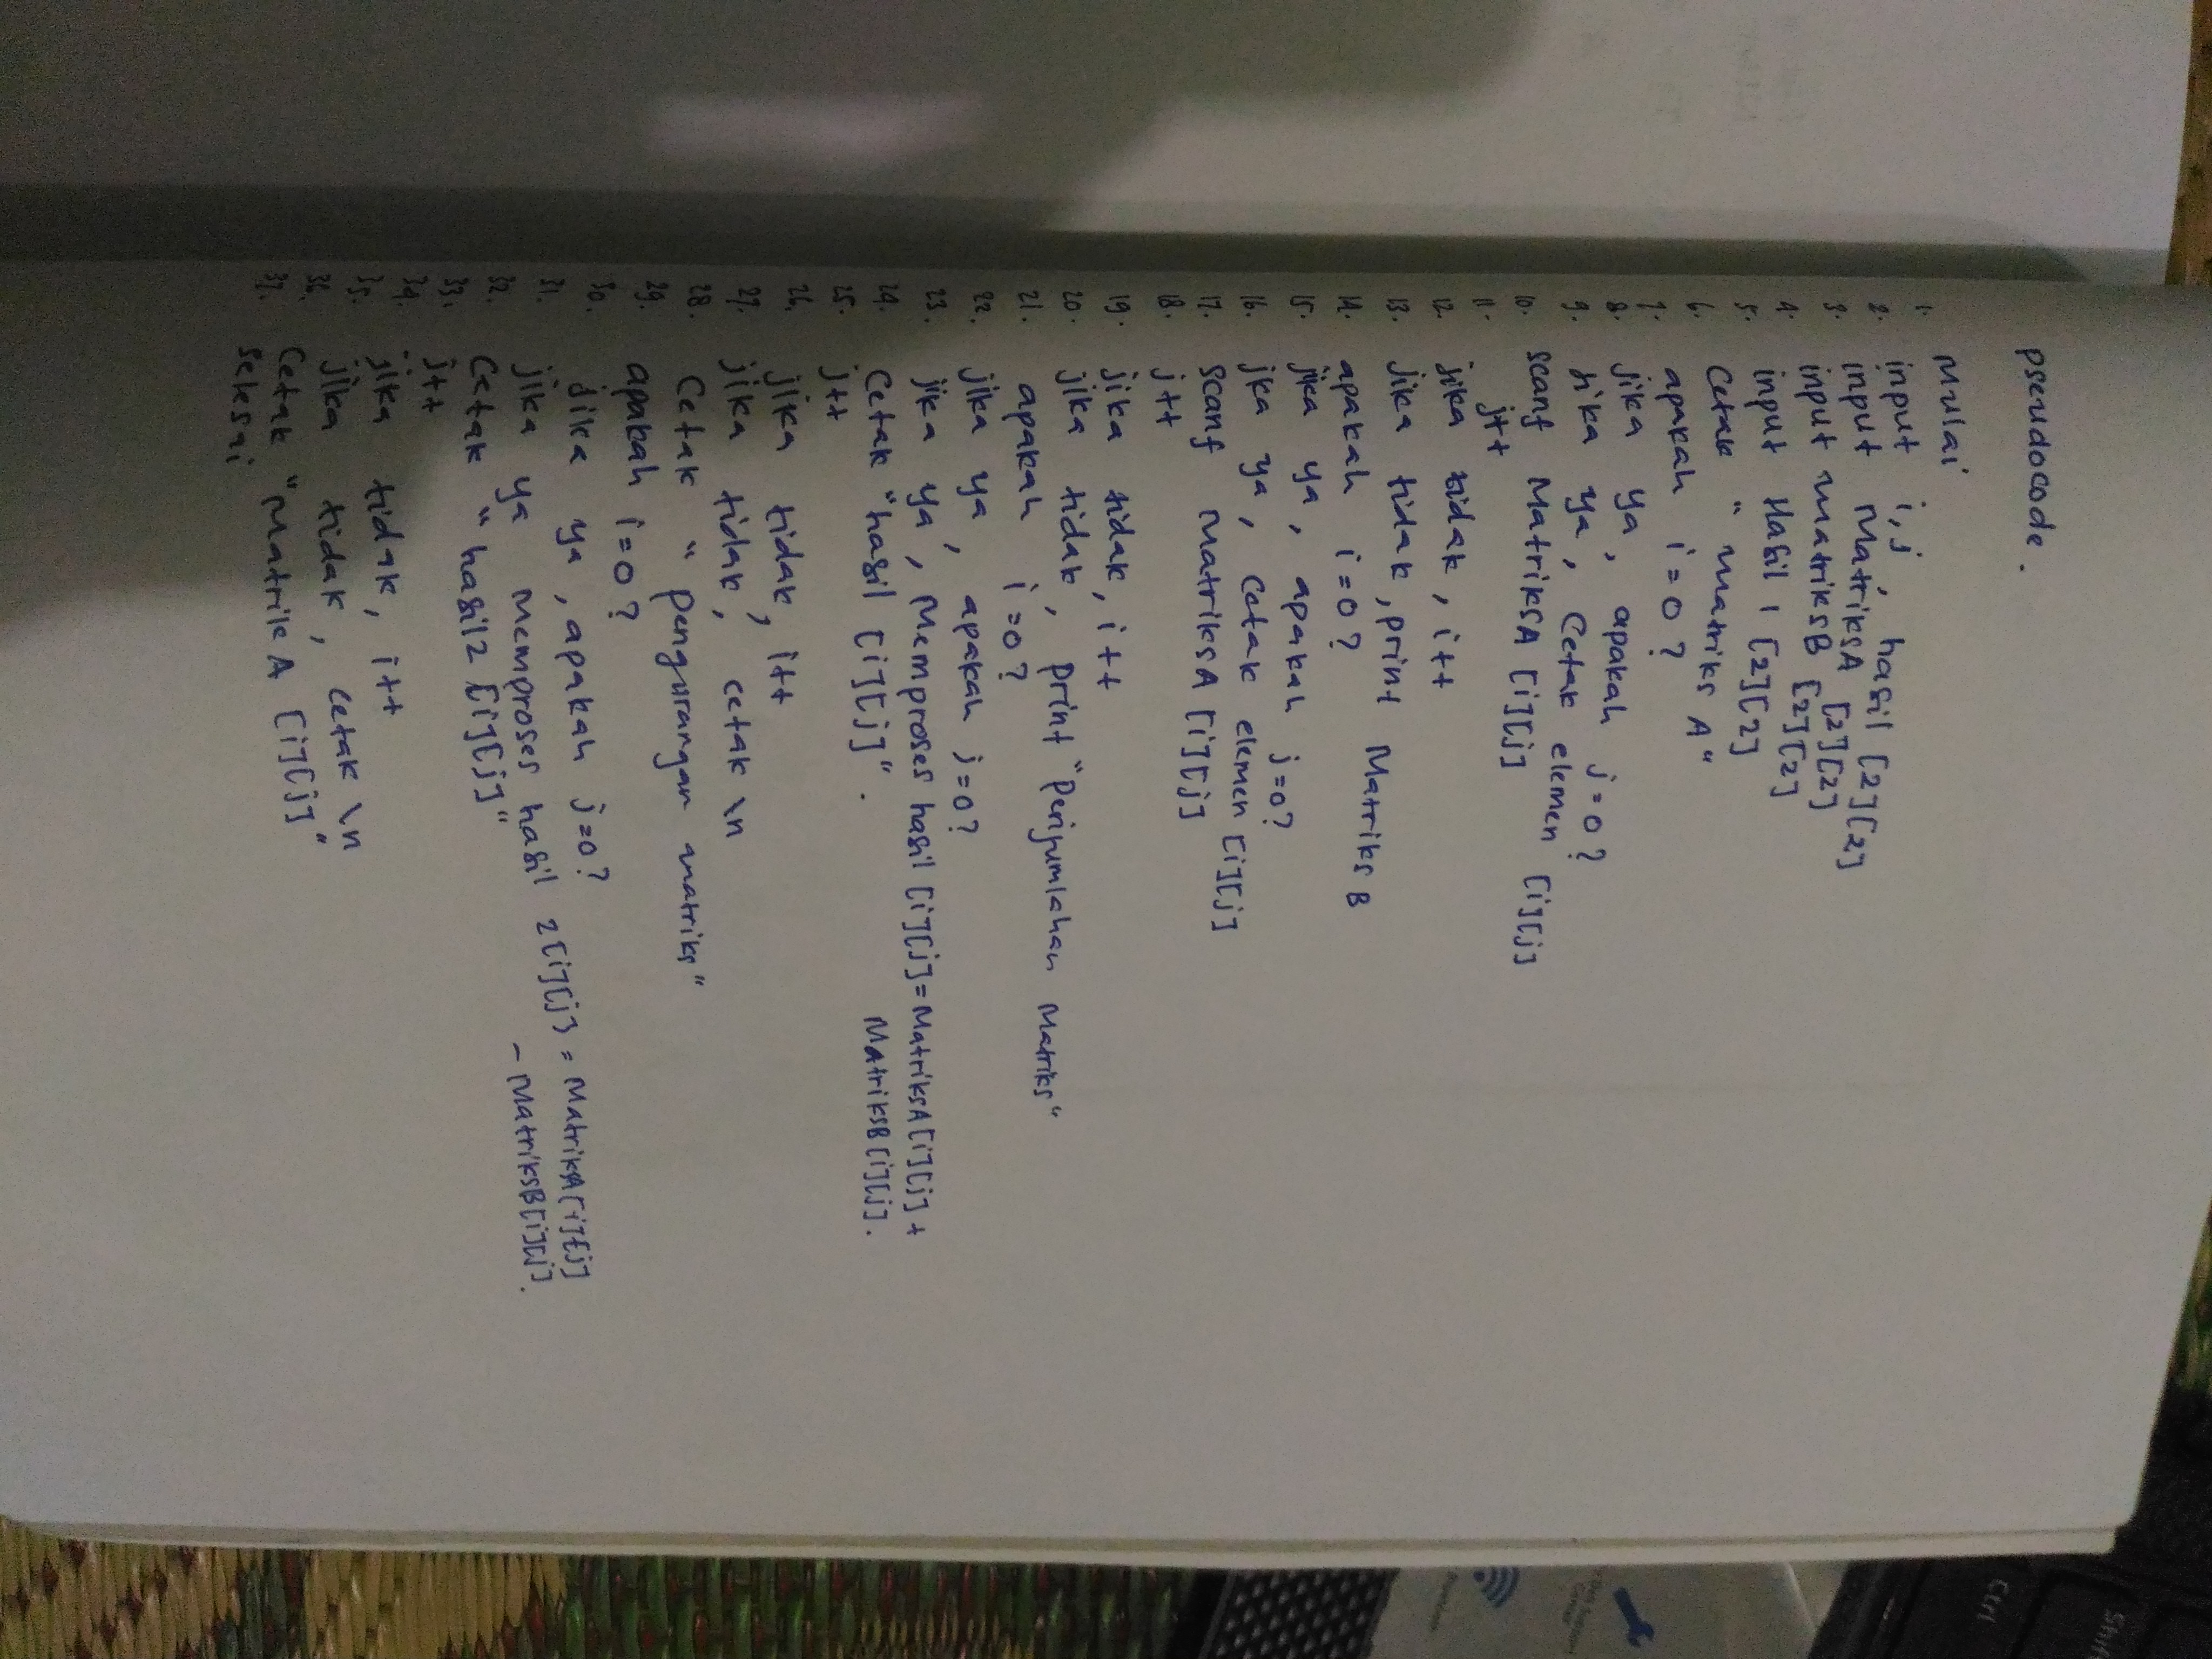 Pseudocode.
1. Mulai
2. input i,j, hasil [2][2]
3. input MatriksA [2][2]
4. input matriksB [2][2]
5. input Hasil 1 [2][2]
6. Cetak "matriks A"
7. apakah i=0?
8. jika ya, apakah j=0?
9. jika ya, Cetak elemen [i][j]
10. scanf MatriksA [i][j]
11. j++
12. jika tidak, i++
13. jika tidak, print Matriks B
14. apakah i=0?
15. jika ya, apakah j=0?
16. jka ya, Cetak elemen [i][j]
17. Scanf MatriksA [i][j]
18. j++
19. jika tidak, i++
20. jika tidak, print "Penjumlahan Matriks"
21. apakah i=0?
22. jika ya, apakah j=0?
23. jika ya, Memproses hasil [i][j]=MatriksA[i][j]+
MatriksB[i][j].
24. Cetak "hasil [i][j]".
25. j++
26. jika tidak, i++
27. jika tidak, cetak \n
28. Cetak "pengurangan matriks"
29. apakah i=0?
30. Jika ya, apakah j=0?
31. jika ya memproses hasil 2[i][j] = MatriksA[i][j]
- MatriksB[i][j].
32. Cetak "hasil2 [i][j]"
33. j++
34. jika tidak, i++
35. jika tidak, Cetak \n
36. Cetak "Matrik A [i][j]"
37. Selesai
Ctrl
Shift